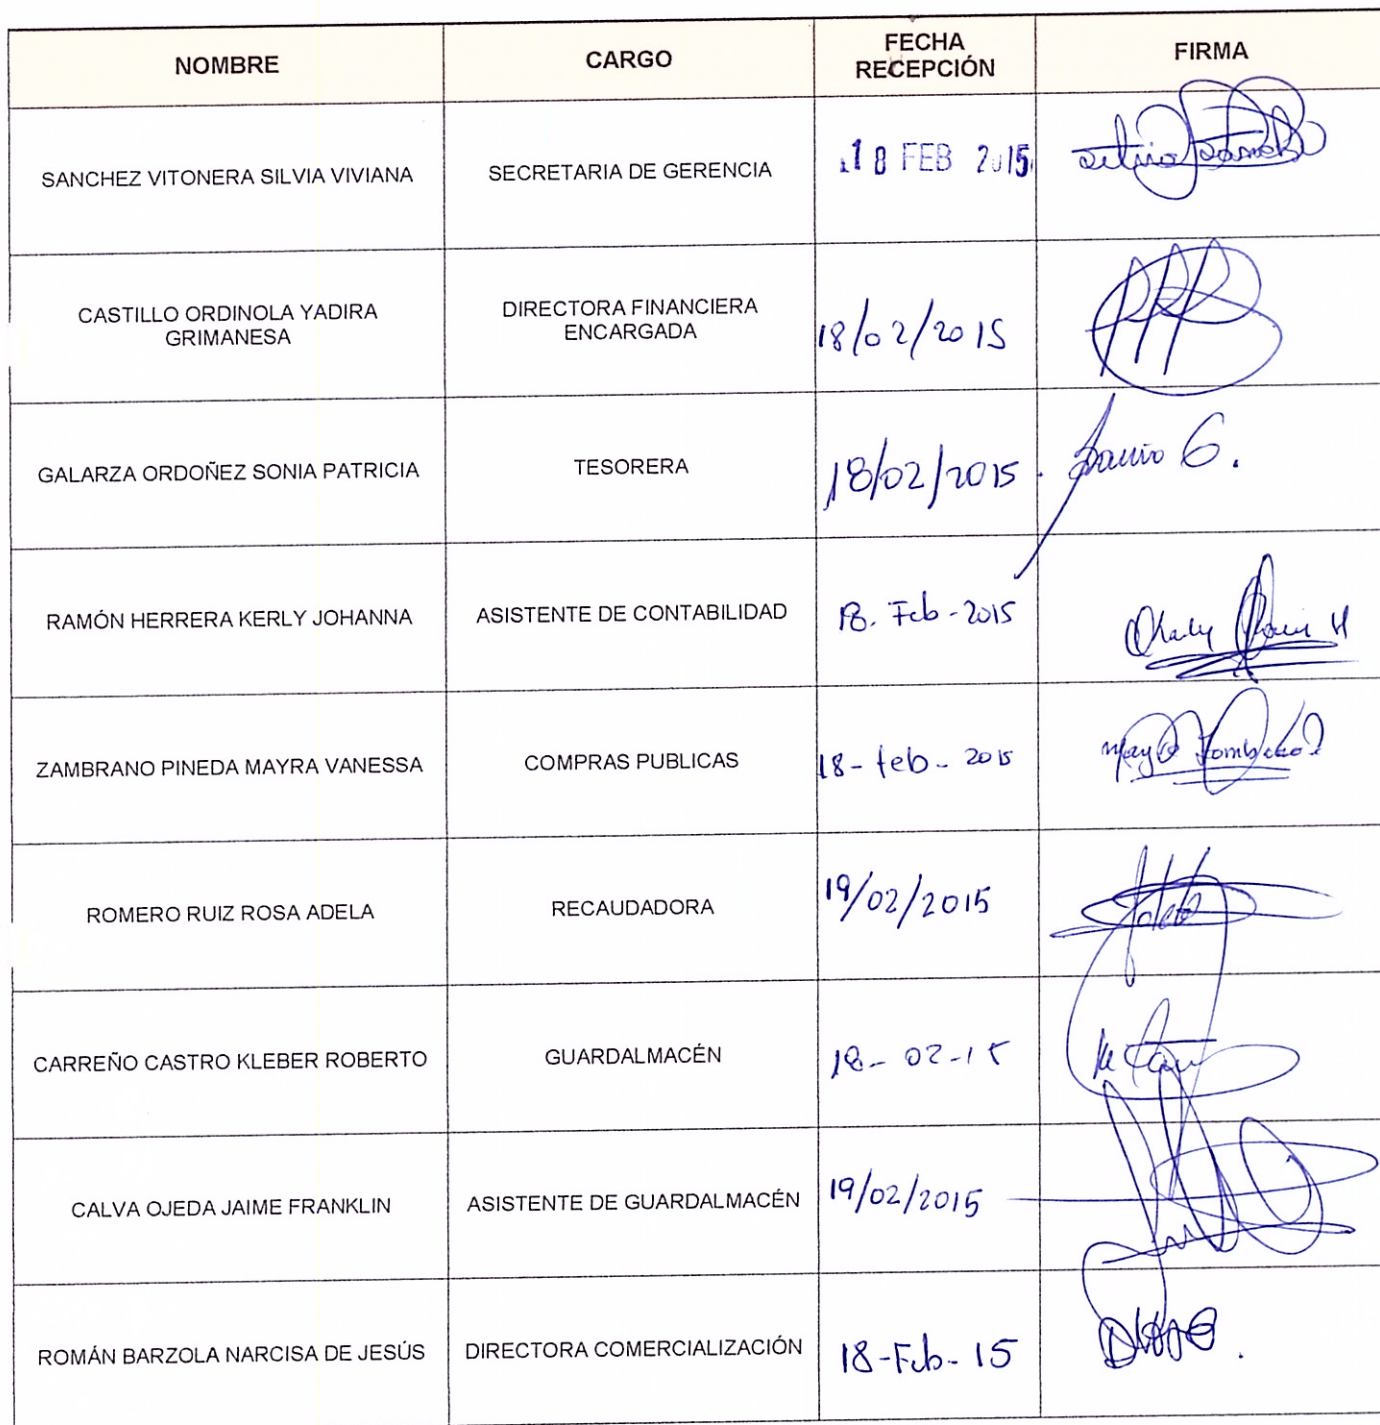 NOMBRE CARGO FECHA RECEPCIÓN FIRMA
SANCHEZ VITONERA SILVIA VIVIANA SECRETARIA DE GERENCIA 18 FEB 2015
CASTILLO ORDINOLA YADIRA GRIMANESA DIRECTORA FINANCIERA ENCARGADA 18/02/2015
GALARZA ORDOÑEZ SONIA PATRICIA TESORERA 18/02/2015. Sonia G.
RAMÓN HERRERA KERLY JOHANNA ASISTENTE DE CONTABILIDAD 18. Feb-2015
ZAMBRANO PINEDA MAYRA VANESSA COMPRAS PUBLICAS 18-feb-2015
ROMERO RUIZ ROSA ADELA RECAUDADORA 19/02/2015
CARREÑO CASTRO KLEBER ROBERTO GUARDALMACÉN 18-02-15
CALVA OJEDA JAIME FRANKLIN ASISTENTE DE GUARDALMACÉN 19/02/2015
ROMÁN BARZOLA NARCISA DE JESÚS DIRECTORA COMERCIALIZACIÓN 18-Feb-15